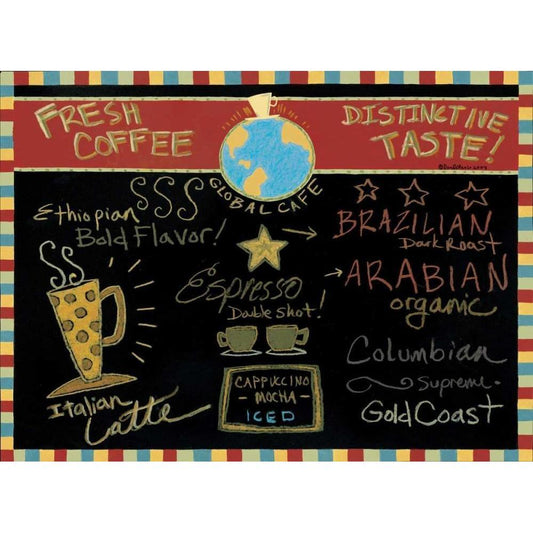 FRESH COFFEE
DISTINCTIVE TASTE!
GLOBAL CAFE
Ethiopian
Bold Flavor!
BRAZILIAN
Dark Roast
Espresso
Double Shot!
ARABIAN
organic
Columbian
Supreme
Gold Coast
CAPPUCCINO
- MOCHA -
ICED
Italian
Latte